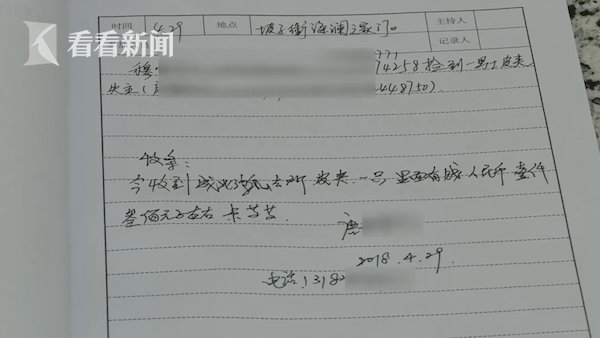 看看新闻
时间 4.29 地点 坡子街海澜之家门口 主持人
记录人
771
穆 74258 捡到一男士皮夹
失主( 448750).
收条:
今收到 皮夹一只 里面有我人民币 壹仟
叁佰元左右 卡若干.
唐
2018.4.29
电话:13182